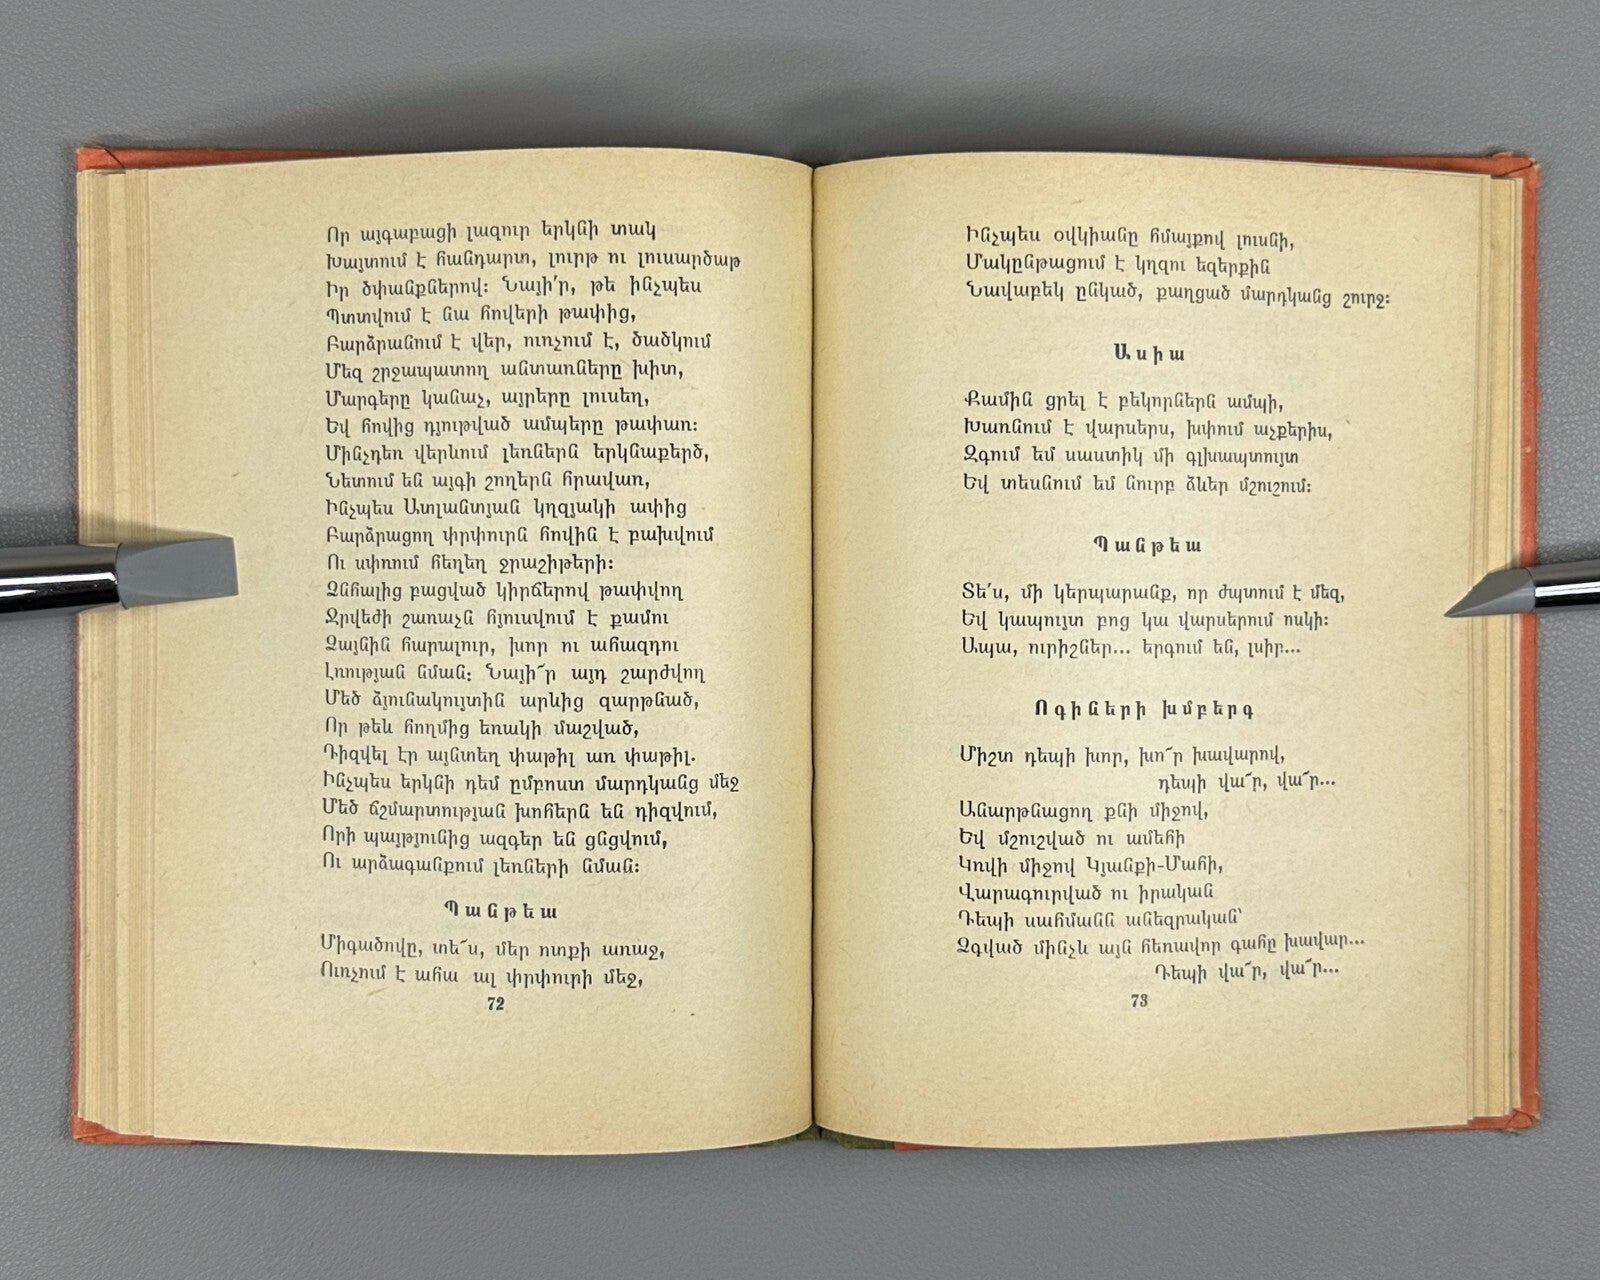 Որ այգաբացի լազուր երկնի տակ
Խայտում է հանդարտ, լուրթ ու լուսարծաթ
Իր ծփանքներով։ Նայի՛ր, թե ինչպես
Պտտվում է նա հովերի թափից,
Բարձրանում է վեր, ուռչում է, ծածկում
Մեզ շրջապատող անտառները խիտ,
Մարգերը կանաչ, այրերը լուսեղ,
Եվ հովից դյութված ամպերը թափառ։
Մինչդեռ վերևում լեռներն երկնաքերծ,
Նետում են այգի շողերն հրավառ,
Ինչպես Ատլանտյան կղզյակի ափից
Բարձրացող փրփուրն հովին է բախվում
Ու սփռում հեղեղ ջրաշիթերի։
Ձնհալից բացված կիրճերով թափվող
Ջրվեժի շառաչն հյուսվում է քամու
Ձայնին հարալուր, խոր ու ահազդու
Լռության նման։ Նայի՜ր այդ շարժվող
Մեծ ձյունակույտին արևից զարթնած,
Որ թեև հողմից եռակի մաշված,
Դիզվել էր այնտեղ փաթիլ առ փաթիլ.
Ինչպես երկնի դեմ ըմբոստ մարդկանց մեջ
Մեծ ճշմարտության խոհերն են դիզվում,
Որի պայթյունից ազգեր են ցնցվում,
Ու արձագանքում լեռների նման։
Պանթեա
Միգածովը, տե՜ս, մեր ոտքի առաջ,
Ուռչում է ահա ալ փրփուրի մեջ,
72
Ինչպես օվկիանը հմայքով լուսնի,
Մակընթացում է կղզու եզերքին
Նավաբեկ ընկած, քաղցած մարդկանց շուրջ։
Ասիա
Քամին ցրել է բեկորներն ամպի,
Խառնում է վարսերս, խփում աչքերիս,
Զգում եմ սաստիկ մի գլխապտույտ
Եվ տեսնում եմ նուրբ ձևեր մշուշում։
Պանթեա
Տե՛ս, մի կերպարանք, որ ժպտում է մեզ,
Եվ կապույտ բոց կա վարսերում ոսկի։
Ապա, ուրիշներ... երգում են, լսիր...
Ոգիների խմբերգ
Միշտ դեպի խոր, խո՜ր խավարով,
դեպի վա՜ր, վա՜ր...
Անարթնացող քնի միջով,
Եվ մշուշված ու ամեհի
Կռվի միջով Կյանքի-Մահի,
Վարագուրված ու իրական
Դեպի սահմանն անեզրական՝
Ձգված մինչև այն հեռավոր գահը խավար...
Դեպի վա՜ր, վա՜ր...
73